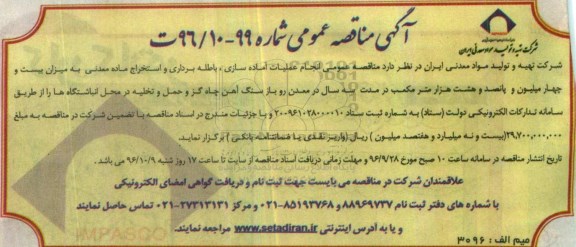 آگهی مناقصه عمومی شماره ۹۹-۹۶/۱۰ت
شرکت تهیه و تولید مواد معدنی ایران
شرکت تهیه و تولید مواد معدنی ایران در نظر دارد مناقصه عمومی انجام عملیات آماده سازی ، باطله برداری و استخراج ماده معدنی به میزان بیست و
چهار میلیون و پانصد و هشت هزار متر مکعب در مدت سه سال در معدن رو باز سنگ آهن چاه گز و حمل و تخلیه در محل انباشتگاه ها را از طریق
سامانه تدارکات الکترونیکی دولت (ستاد) به شماره ثبت ستاد ۲۰۰۹۶۱۰۲۸۰۰۰۰۱۰ و با جزئیات مندرج در اسناد مناقصه با تضمین شرکت در مناقصه به مبلغ
۲۹,۷۰۰,۰۰۰,۰۰۰ (بیست و نه میلیارد و هفتصد میلیون ) ریال (واریز نقدی یا ضمانتنامه بانکی ) برگزار نماید.
تاریخ انتشار مناقصه در سامانه ساعت ۱۰ صبح مورخ ۹۶/۹/۲۸ و مهلت زمانی دریافت اسناد مناقصه از سایت تا ساعت ۱۷ روز شنبه ۹۶/۱۰/۹ می باشد .
علاقمندان شرکت در مناقصه می بایست جهت ثبت نام و دریافت گواهی امضای الکترونیکی
با شماره های دفتر ثبت نام ۸۸۹۶۹۷۳۷ و ۸۵۱۹۳۷۶۸-۰۲۱ و مرکز ۲۷۳۱۳۱۳۱-۰۲۱ تماس حاصل نمایند
و یا به آدرس اینترنتی www.setadiran.ir مراجعه نمایند.
میم الف : ۳۰۹۶
IMPASCO